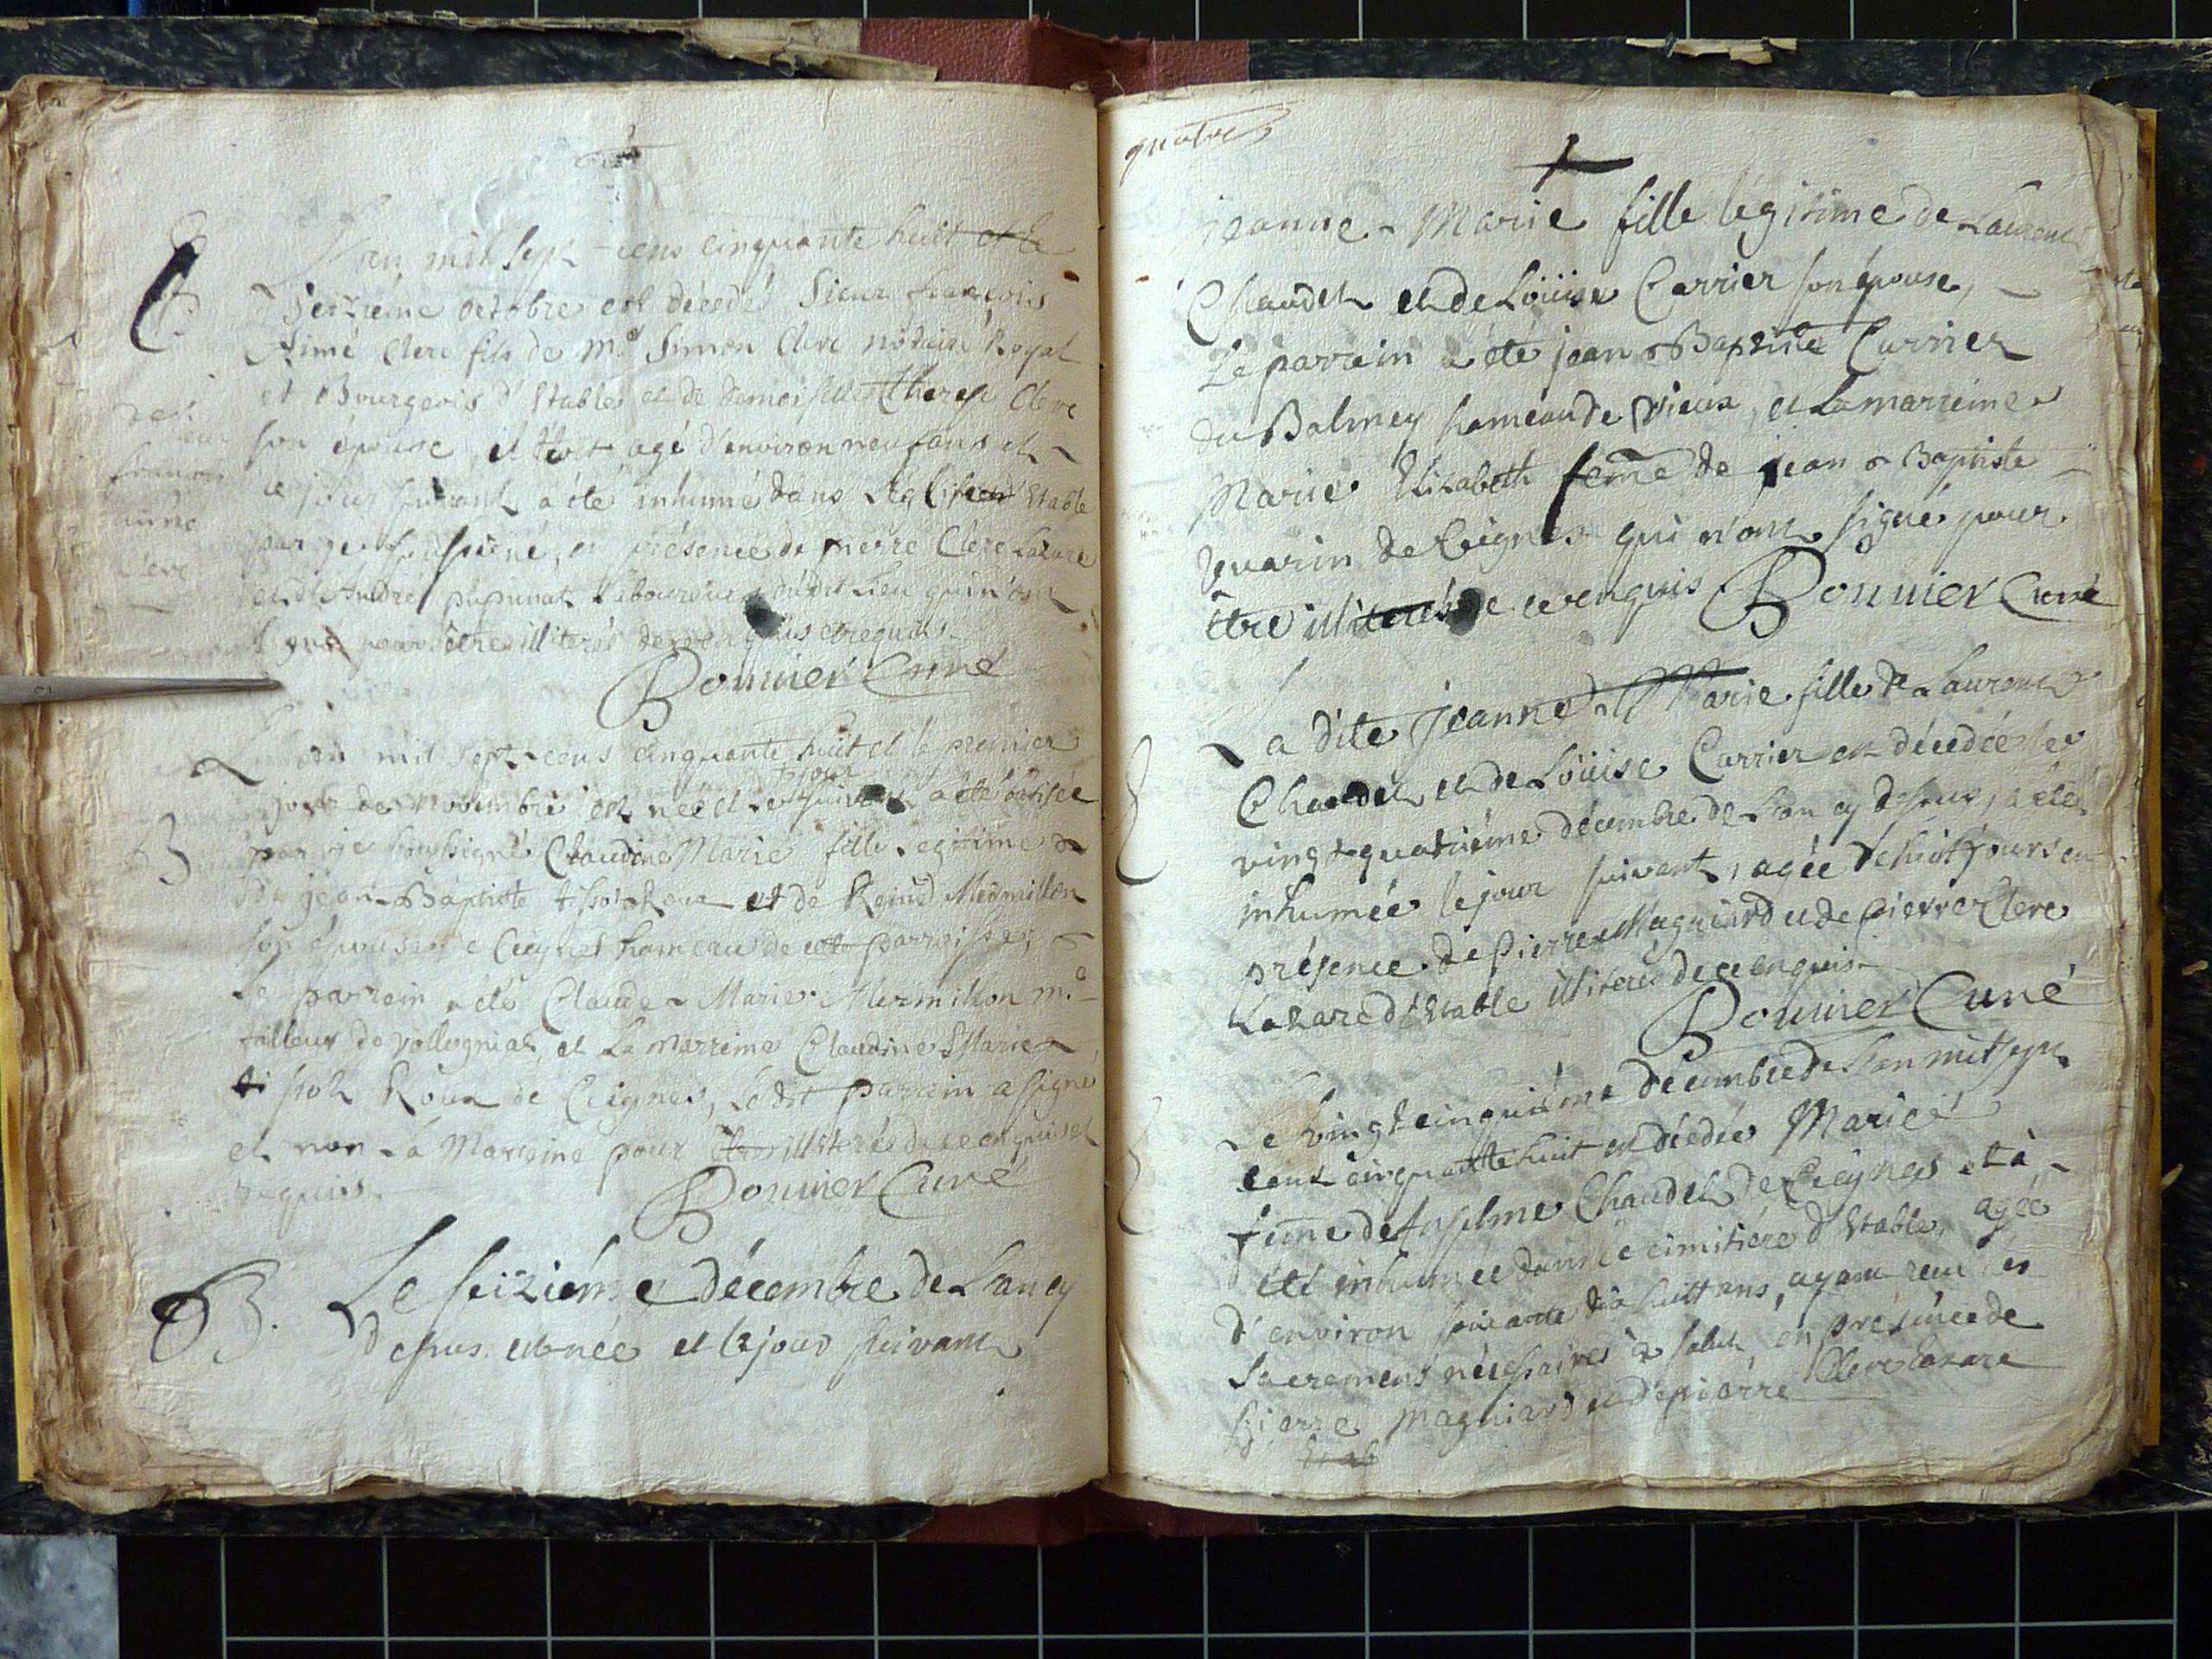 L'an mil sept cens cinquante huit et le
seizième octobre est décédé Sieur françois
Aimé Clerc fils de Me Simon Clerc nôtaire Royal
et Bourgeois d'Etables et de demoiselle Therese Clerc
son épouse, il étoit agé d'environ neuf ans et
le jour suivant a été inhumé dans l'eglise d'Etable
par je soussigné, en présence de pierre Clerc Lazare
et d'André papunat laboureurs dudit lieu qui n'ont
signé pour être illiterés de ce enquis et requis.
Bonnier Curé
de
sieur
françois
aimé
clerc
L'an mil sept cens cinquante huit et le premier
jour de novembre est née et le jour suivant a été batisée
B par je soussigné Claudine Marie fille legitime
de jean-Baptiste tissot Roux et de Reine Mermillon
son épouse de Ceignes hameau de cette parroisse,
Le parrein a été Claude-Marie Mermillon me
tailleur de vollogniat, et La marreine Claudine Marie
tissot Roux de Ceignes, le dit parrein a signé
et non la Marreine pour être illiterée de ce enquise et
requise.
Bonnier Curé
B. Le seizième décembre de L'an cy
dessus est née et le jour suivant
quatre
jeanne-Marie fille légitime de Laurent
Chaudet et de Loüise Carrier son épouse,
Le parrein a été jean-Baptiste Carrier
du Balmey hameau de vieux, et La marreine
Marie Elizabeth feme de jean-Baptiste
guarin de Ceignes qui n'ont signé pour
être illiterés de ce enquis Bonnier Curé
La dite Jeanne-Marie fille de Laurent
Chaudet et de Loüise Carrier est décédée le
vingt quatrième décembre de L'an cy dessus, a été
inhumée le jour suivant, agée de huit jours en
présence de Pierre Magniard et de Pierre Clerc
Lazare d'Etable illiterés de ce enquis
Bonnier Curé
Le vingt cinquième décembre de L'an mil sept
cent cinquante huit est décédée Marie
feme de Anselme Chaudet de Ceignes et à
été inhumée dans le cimitière d'Etable, agée
d'environ soixante dix huit ans, ayant reçu les
Sacremens nécessaires à salut, en présence de
pierre Magniard et de pierre Clerc Lazare